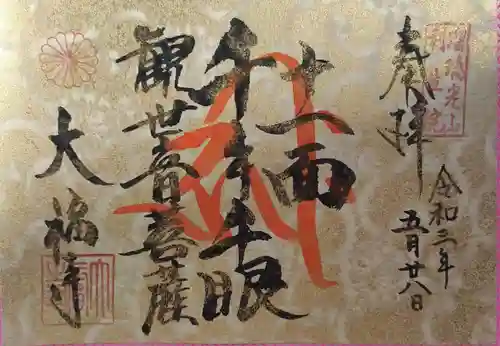 奉拝
令和二年
五月廿八日
十一面
千手千眼
観世音菩薩
大福寺